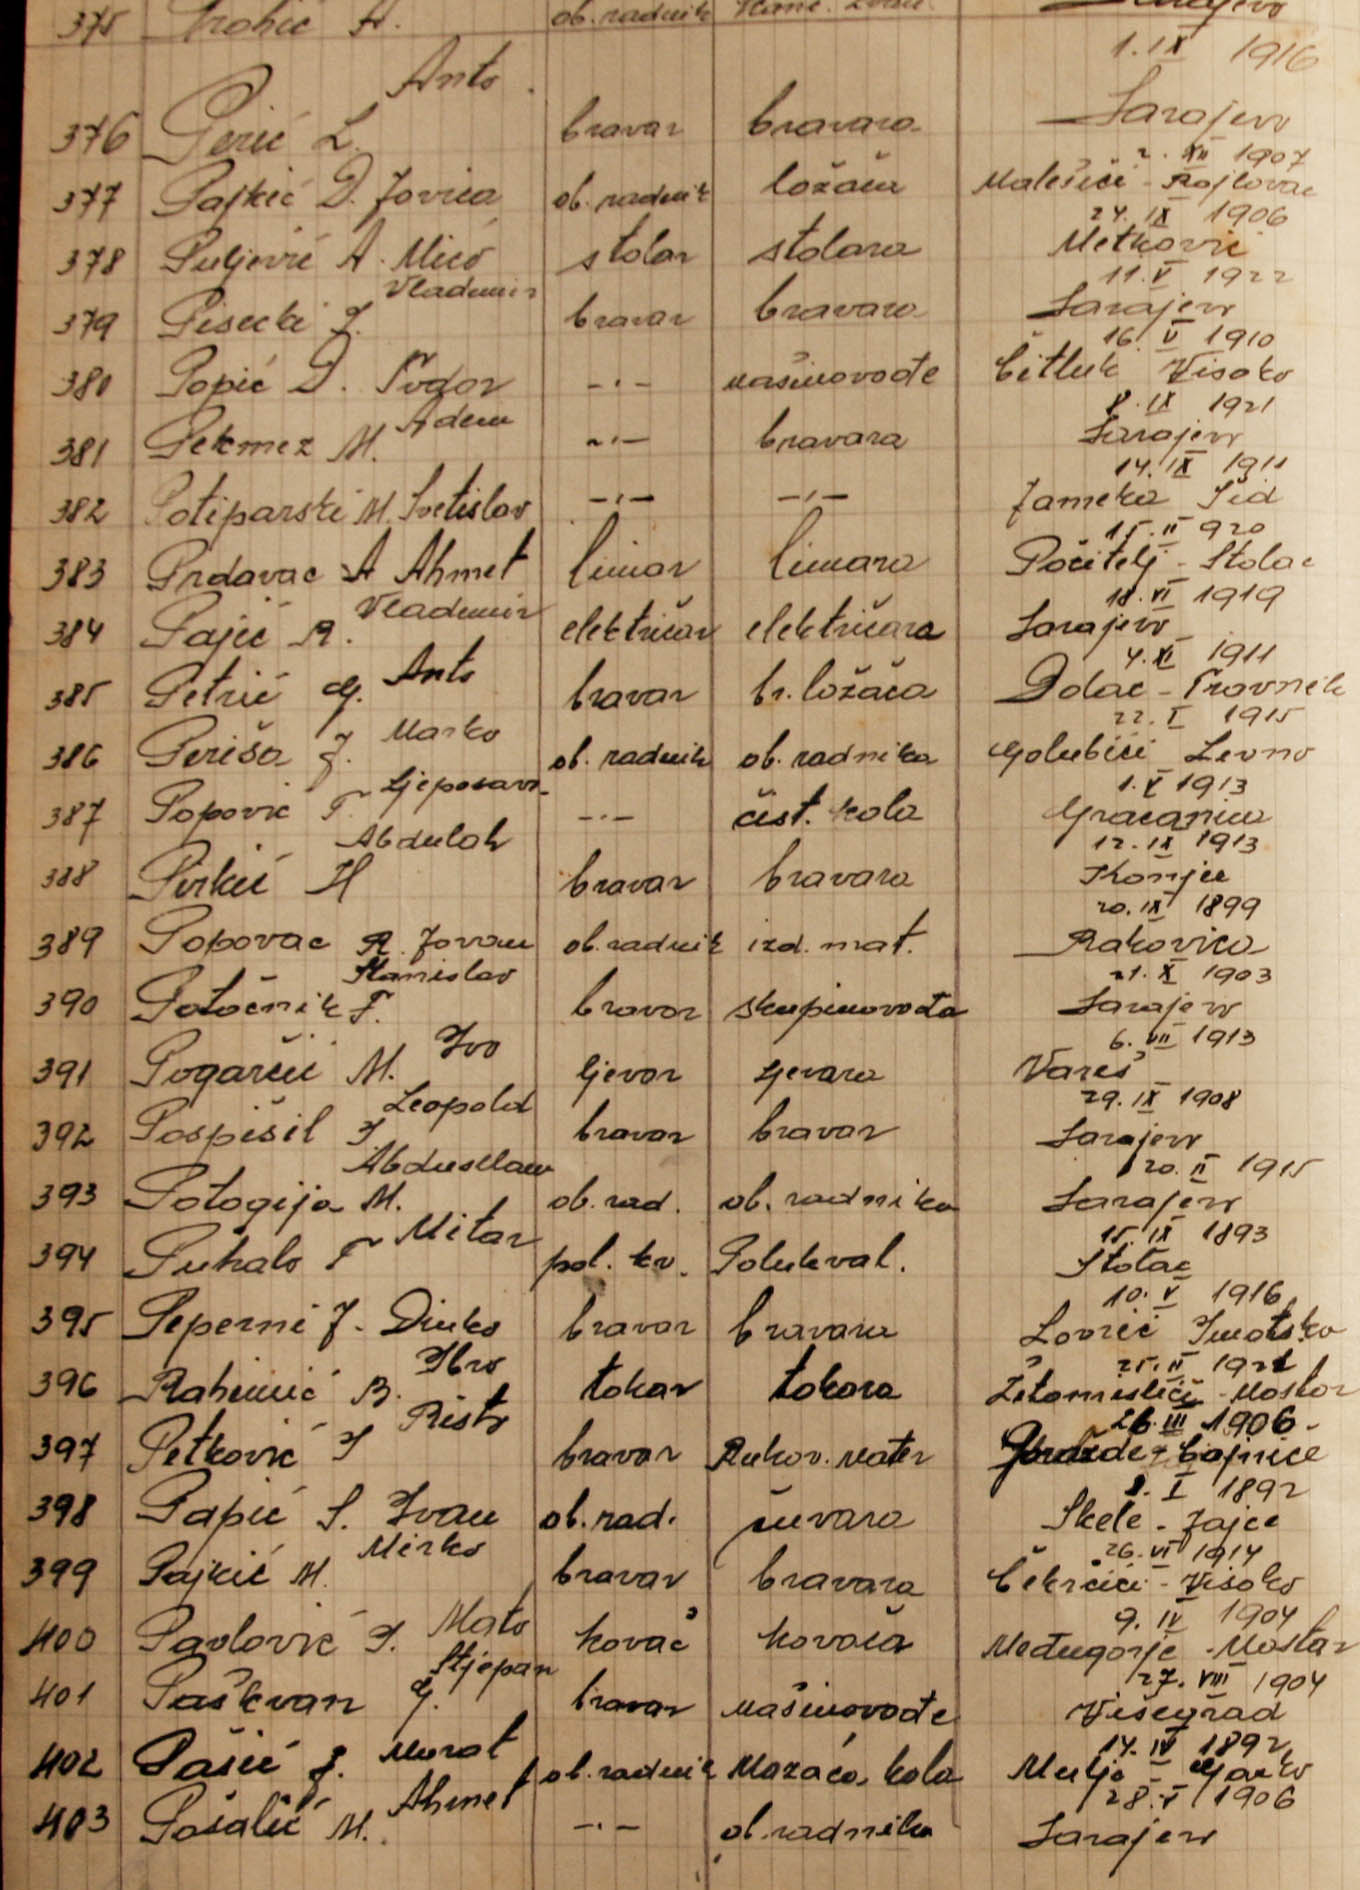 375 Prohić A. ob. radnik Sarajevo
1.IX 1916
376 Perić L. Anto bravar bravara Sarajevo
2. XII 1907
377 Pajkić D. Jovica ob. radnik ložača Malešići - Rajlovac
24. IX 1906
378 Puljević A. Mićo stolar stolara Metković
11. V 1922
379 Pisecki J. Vladimir bravar bravara Sarajevo
16. V 1910
380 Popić D. Tvdor -·- mašinovođe Čitluk Visoko
8. IX 1921
381 Pekmez M. Adem -·- bravara Sarajevo
14. IX 1911
382 Potiparski M. Svetislav -·- -·- Jameka Šid
15. II 920
383 Prdavac A Ahmet limar limara Počitelj - Stolac
18. VI 1919
384 Pajić R. Vladimir električar električara Sarajevo
4. XI 1911
385 Petrić G. Anto bravar br. ložača Dolac - Travnik
22. I 1915
386 Periša J. Marko ob. radnik ob. radnika Golubići Livno
1. V 1913
387 Popović T. Ljeposava -·- čist. kola Gračanica
12. IX 1913
388 Pirkić H Abdulah bravar bravara Konjic
20. IX 1899
389 Popovac R. Jovan ob. radnik izd. mat. Rakovica
21. X 1903
390 Potočnik F. Stanislav bravar skupinovođa Sarajevo
6. VII 1913
391 Pogarčić M. Ivo ljevar ljevara Vareš
29. IX 1908
392 Pospišil J Leopold bravar bravar Sarajevo
20. II 1915
393 Potogija M. Abduselam ob. rad. ob. radnika Sarajevo
15. IX 1893
394 Puhalo T Mitar pol. kv. Polukval. Stolac
10. V 1916
395 Peperni J. Dinko bravar bravara Lovrić Imotsko
25. II 1921
396 Rahimić B. Ibro tokar tokara Žitomislići - Mostar
26. III 1906
397 Petković J Risto bravar Rukov. mater Goražde - Čajniče
8. I 1892
398 Papić S. Ivan ob. rad. čuvara Skele - Jajce
26. VI 1914
399 Pajkić M. Mirko bravar bravara Čekrčići - Visoko
9. IV 1904
400 Pavlović J. Mato kovač kovača Međugorje - Mostar
27. VIII 1904
401 Paškvan G. Stjepan bravar mašinovođe Višegrad
14. IV 1892
402 Pašić J. Murat ob. radnik Mazača kola Mulja - Gacko
28. V 1906
403 Pašalić M. Ahmet -·- ob. radnika Sarajevo